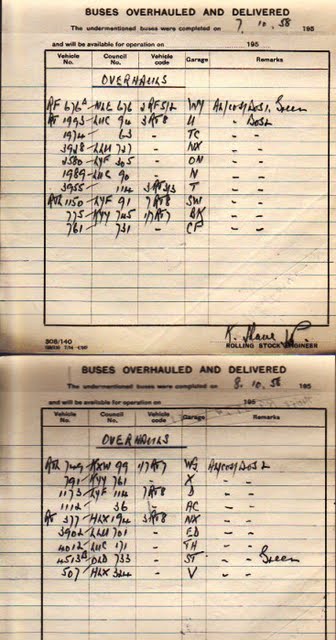 BUSES OVERHAULED AND DELIVERED
The undermentioned buses were completed on 7. 10. 58 195
and will be available for operation on 195
Vehicle No. Council No. Vehicle code Garage Remarks
OVERHAULS
RF 676 NLE 676 2RF5/2 WY Green
RT 1993 LUC 94 3RT8 H - DOS2
1974 - 63 - TC - -
3928 LLU 727 - NX - -
2580 LYF 305 - ON - -
1989 LUC 90 - N - -
3955 - 114 T - -
RTL 1150 LYF 91 7RT8 SW - -
775 KYY 745 17RT7 BK - -
761 - 731 - CF - -
308/140
ROLLING STOCK ENGINEER
BUSES OVERHAULED AND DELIVERED
The undermentioned buses were completed on 8. 10. 58 195
and will be available for operation on 195
Vehicle No. Council No. Vehicle code Garage Remarks
OVERHAULS
RTL 749 KXW 99 17RT7
791 KYY 761 - X - -
1173 LYF 114 7RT8 D - -
1112 - 36 - AC - -
RT 377 HLX 194 3RT8 NX - -
3902 LLU 701 - ED - -
4012 LUC 171 - TH - -
4513 OLD 733 - ST - Green
507 HLX 324 - V - -